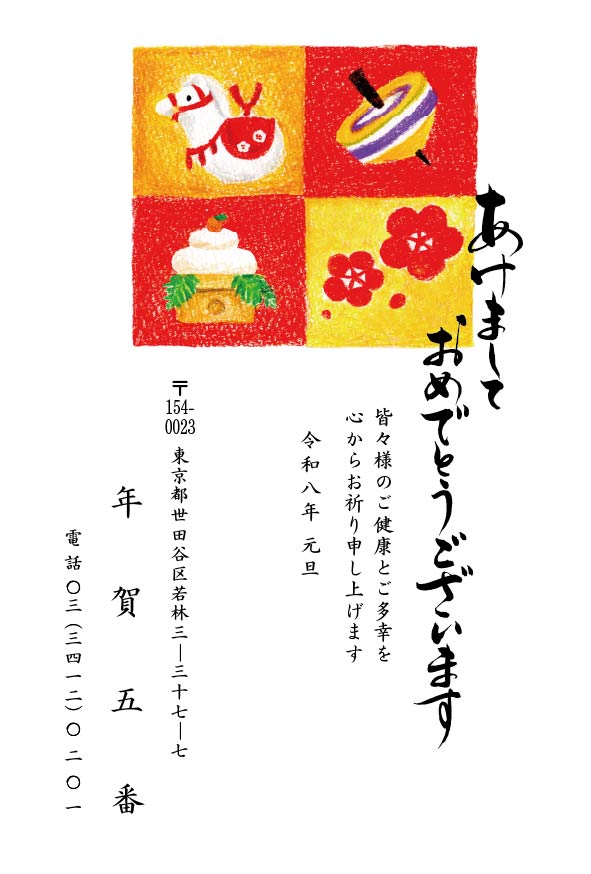 あけまして
おめでとうございます
皆々様のご健康とご多幸を
心からお祈り申し上げます
令和八年 元旦
〒154-0023 東京都世田谷区若林三―三十七―七
年賀五番
電話〇三(三四一二)〇二〇一